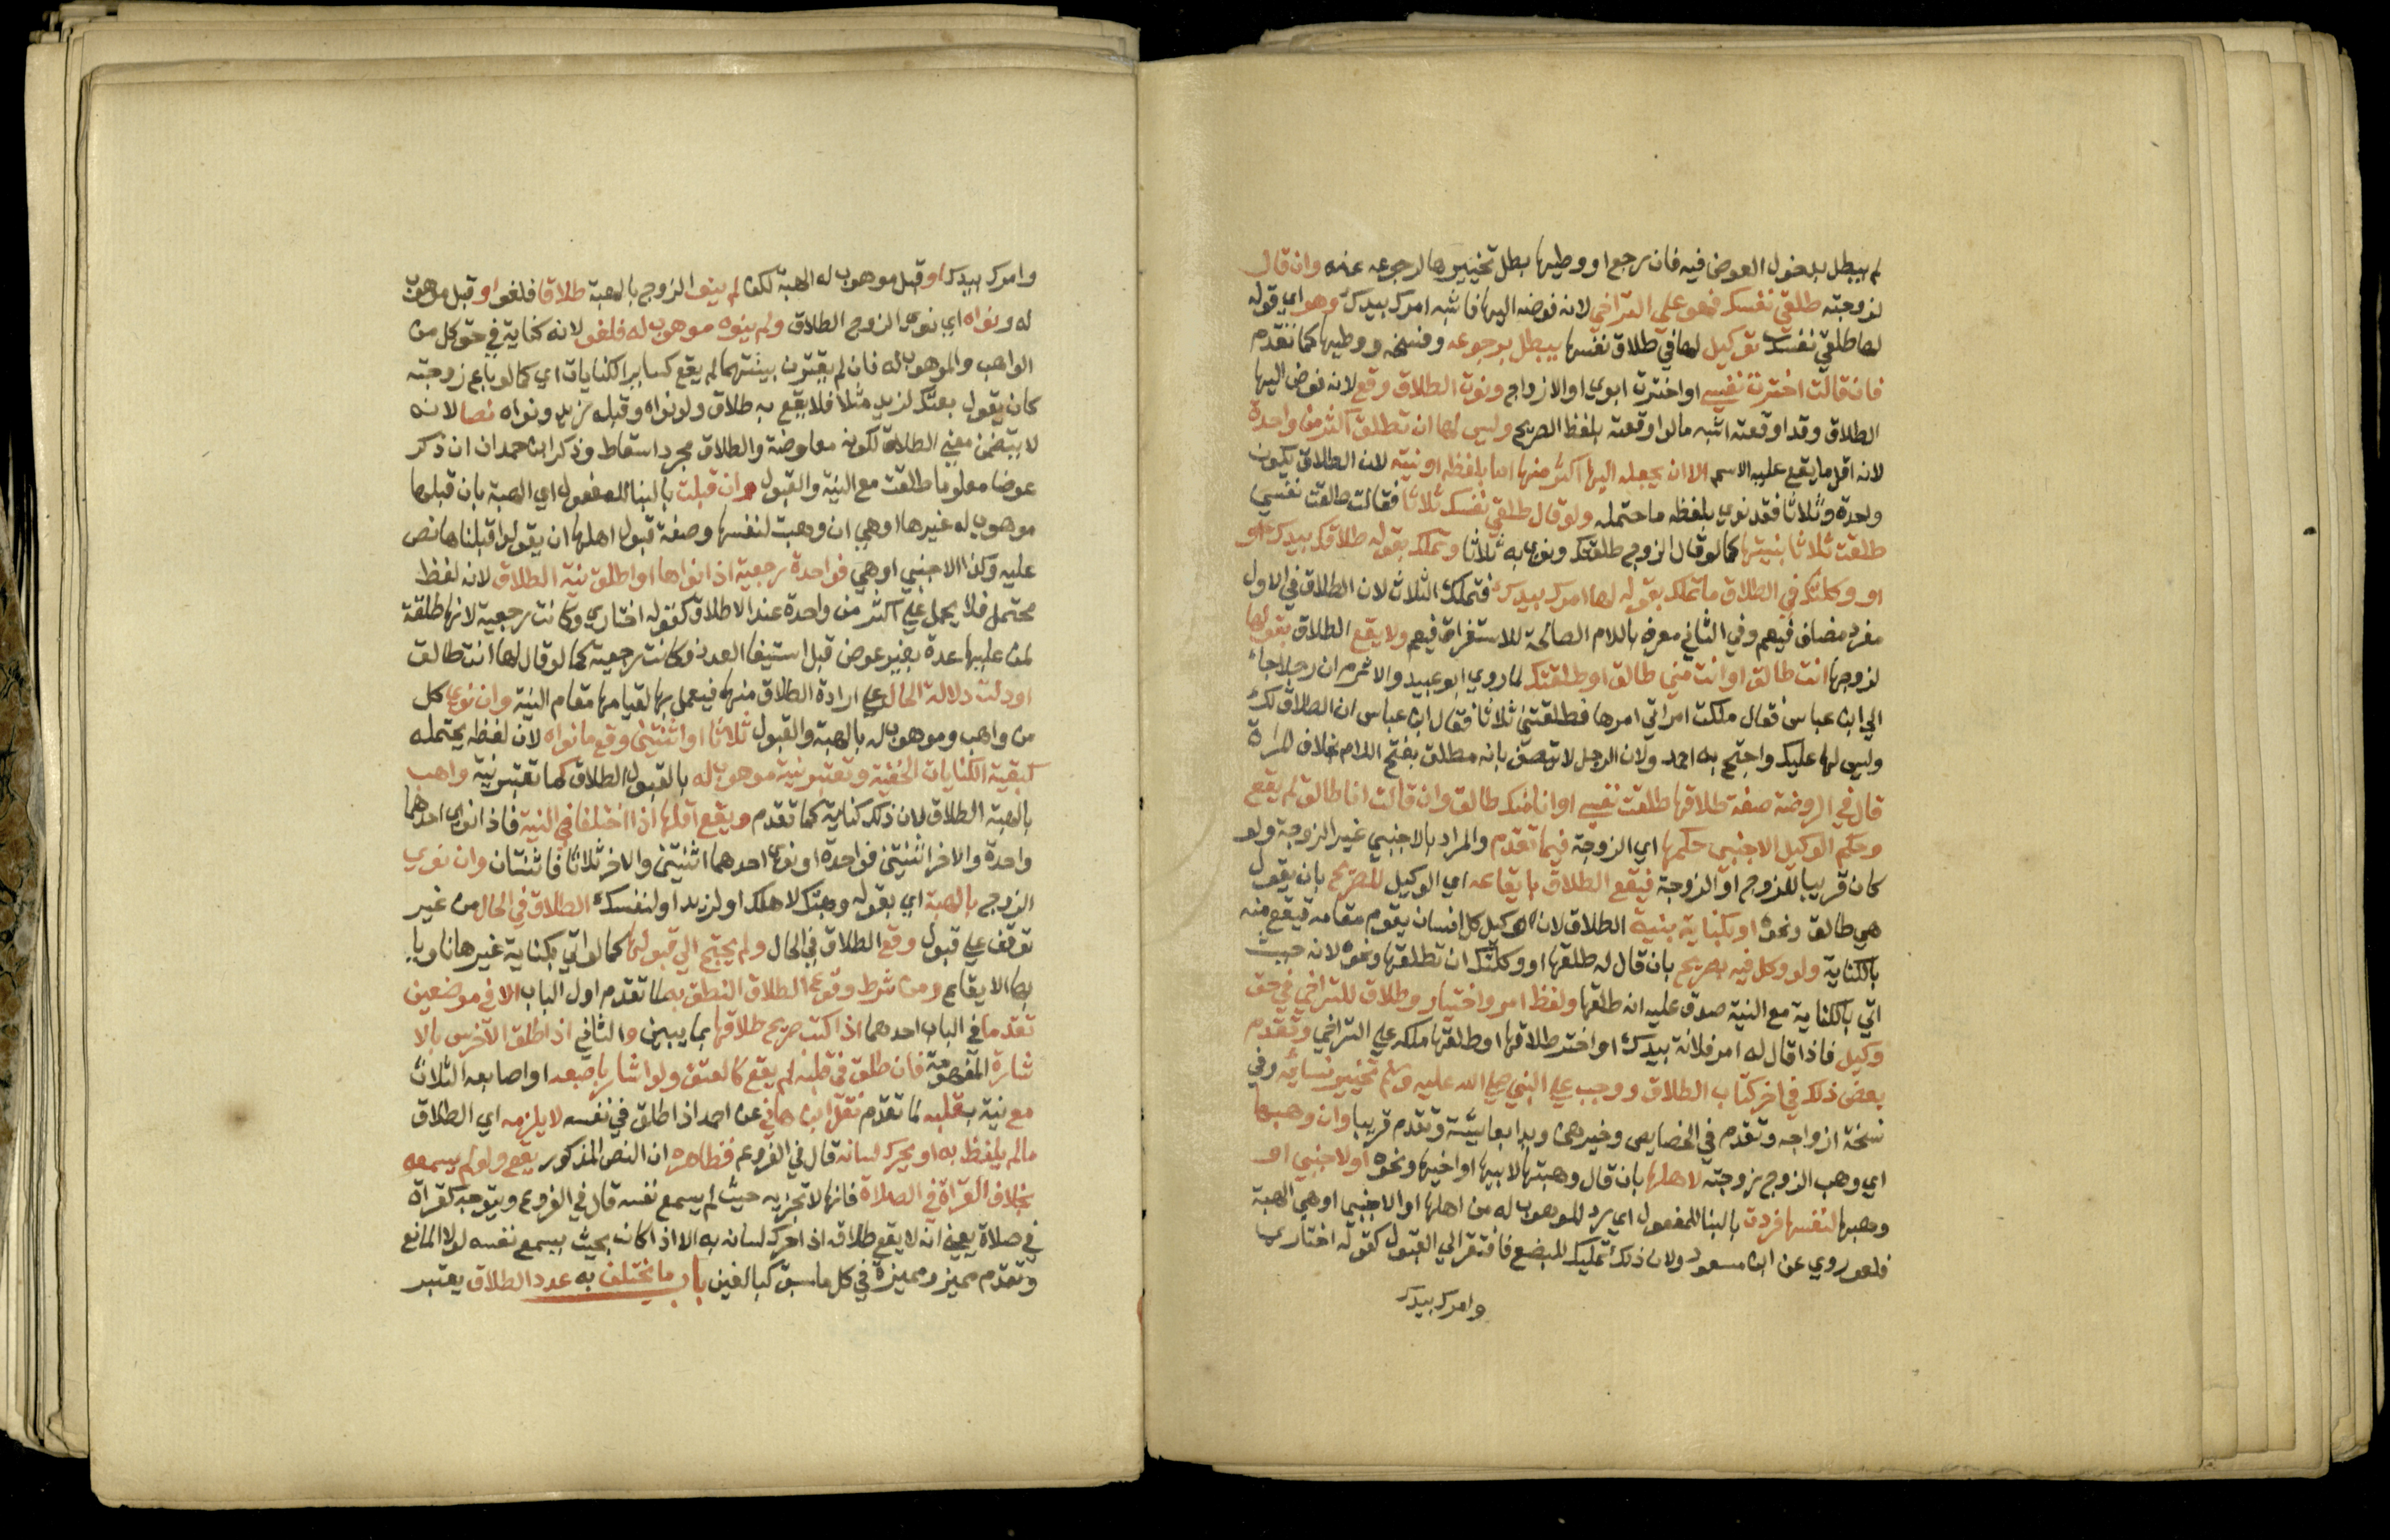 لم يبطل بدخول العوض فيه فان رجع او وطيها بطل تخييرها لرجوعه عنه وان قال
لزوجته طلقي نفسك فهو علي التراخي لانه فوضه اليها فاشبه امرك بيدك وهو اي قوله
لها طلقي نفسك توكيل لها في طلاق نفسها يبطل برجوعه وفسخه ووطيها كما تقدم
فان قالت اخترت نفسي او اخترت ابوي او الازواج ونوت الطلاق وقع لانه فوض اليها
الطلاق وقد اوقعته اشبه ما لو اوقعته بلفظ الصريح وليس لها ان تطلق اكثر من واحدة
لانه اقل ما يقع عليه الاسم الا ان يجعله اليها اكثر منها اما بلفظه او نيته لان الطلاق يكون
واحدة وثلاثا فقد نوي بلفظه ما احتمله ولو قال طلقي نفسك ثلاثا فقالت طلقت نفسي
طلقت ثلاثا بنيتها كما لو قال الزوج طلقتك ونوي به ثلاثا وتملك بقوله طلاقك بيدك او
او وكلتك في الطلاق ما تملك بقوله لها امرك بيدك فتملك الثلاث لان الطلاق في الاول
مفرد مضاف فيعم وفي الثاني معرف باللام الصالحة للاستغراق فيعم ولا يقع الطلاق بقولها
لزوجها انت طالق او انت مني طالق او طلقتك لما روي ابو عبيد والاثرم ان رجلا جاء
الي ابن عباس فقال ملكت امراتي امرها فطلقتني ثلاثا فقال ابن عباس ان الطلاق لك
وليس لها عليك واحتج به احمد ولان الرجل لا يتصف بانه مطلق بفتح اللام بخلاف المراة
قال في الروضة صفة طلاقها طلقت نفسي او انا منك طالق وان قالت انا طالق لم يقع
وحكم الوكيل الاجنبي حكمها اي الزوجة فيما تقدم والمراد بالاجنبي غير الزوجة ولو
كان قريبا للزوج او الزوجة فيقع الطلاق بايقاعه اي الوكيل الصريح بان يقول
هي طالق ونحوه او بكناية بنية الطلاق لان وكيل كل انسان يقوم مقامه فيقع منه
بالكناية ولو وكل فيه بصريح بان قال له طلقها او وكلتك ان تطلقها ونحوه لانه حيث
اتي بالكناية مع النية صدق عليه انه طلقها ولفظ امر واختيار وطلاق للتراخي في حق
وكيل فاذا قال له امر فلانة بيدك او اختر طلاقها او طلقها ملكه علي التراخي وتقدم
بعض ذلك في اخر كتاب الطلاق ووجب علي النبي صلي الله عليه وسلم تخيير نسائه وفي
نسخة ازواجه وتقدم في الخصايص وخيرهن وبدا بعايشة وتقدم قريبا وان وهبها
اي وهب الزوج زوجته لاهلها بان قال وهبتها لابيها او اخيها ونحوه او لاجنبي او
وهبها لنفسها فردت بالبنا للمفعول اي رد الموهوب له من اهلها او الاجنبي او هي الهبة
فلغو روي عن ابن مسعود ولان ذلك تمليك للبضع فافتقر الي القبول كقوله اختاري
وامرك بيدك
وامرك بيدك او قبل موهوب له الهبة لكن لم ينو الزوج بالهبة طلاقا فلغو او قبل موهوب
له ونواه اي نوي الزوج الطلاق ولم ينوه موهوب له فلغو لانه كناية في حق كل من
الواهب والموهوب له فان لم يقترن بينتهما لم يقع كساير الكنايات اي كما لو باع زوجته
كان يقول بعتك لزيد مثلا فلا يقع به طلاق ولو نواه وقبله زيد ونواه نصا لانه
لا يتضمن معني الطلاق لكونه معاوضة والطلاق مجرد اسقاط وذكر ابن حمدان ان ذكر
عوضا معلوما طلقت مع النية والقبول وان قبلت بالبنا للمفعول اي الهبة بان قبلها
موهوب له غيرها او هي ان وهبت لنفسها وصفة قبول اهلها ان يقولوا قبلناها نص
عليه وكذا الاجنبي او هي فواحدة رجعية اذا نواها او اطلق نية الطلاق لانه لفظ
محتمل فلا يحمل علي اكثر من واحدة عند الاطلاق كقوله اختاري وكانت رجعية لانها طلقة
لمن عليها عدة بغير عوض قبل استيفا العدد فكانت رجعية كما لو قال لها انت طالق
او دلت دلالة الحال علي ارادة الطلاق منها فيعمل بها لقيامها مقام النية وان نوي كل
من واهب وموهوب له بالهبة والقبول ثلاثا او اثنتين وقع ما نواه لان لفظه يحتمله
كبقية الكنايات الخفية وتعتبر نية موهوب له بالقبول الطلاق كما تعتبر نية واهب
بالهبة الطلاق لان ذلك كناية كما تقدم ويقع اقلها اذا اختلفا في النية فاذا نوي احدهما
واحدة والاخر اثنتين فواحدة او نوي احدهما اثنتين والاخر ثلاثا فاثنتان وان نوي
الزوج بالهبة اي بقوله وهبتك لاهلك او لزيد او لنفسك الطلاق في الحال من غير
توقف علي قبول وقع الطلاق في الحال ولم يحتج الي قبولها كما لو اتي بكناية غيرها ناويا
بها الايقاع ومن شرط وقوع الطلاق النطق به لما تقدم اول الباب الا في موضعين
تقدما في الباب احدهما اذا كتب صريح طلاقها بما يبين والثاني اذا طلق الاخرس بالا
شارة المفهومة فان طلق في قلبه لم يقع كالعتق ولو اشار باصبعه او اصابعه الثلاث
مع نية بقلبه لما تقدم نقل ابن هاني عن احمد اذا طلق في نفسه لا يلزمه اي الطلاق
مالم يلفظ به او يحرك لسانه قال في الفروع فظاهره ان النص المذكور يقع ولو لم يسمعه
بخلاف القراة في الصلاة فانها لا تجزيه حيث لم يسمع نفسه قال في الفروع ويتوجه كقراة
في صلاة يعني انه لا يقع طلاقه اذا حرك لسانه به الا اذا كان بحيث يسمع نفسه لولا المانع
وتقدم مميز ومميزة في كل ما سبق كبالغين باب ما يختلف به عدد الطلاق يعتبر